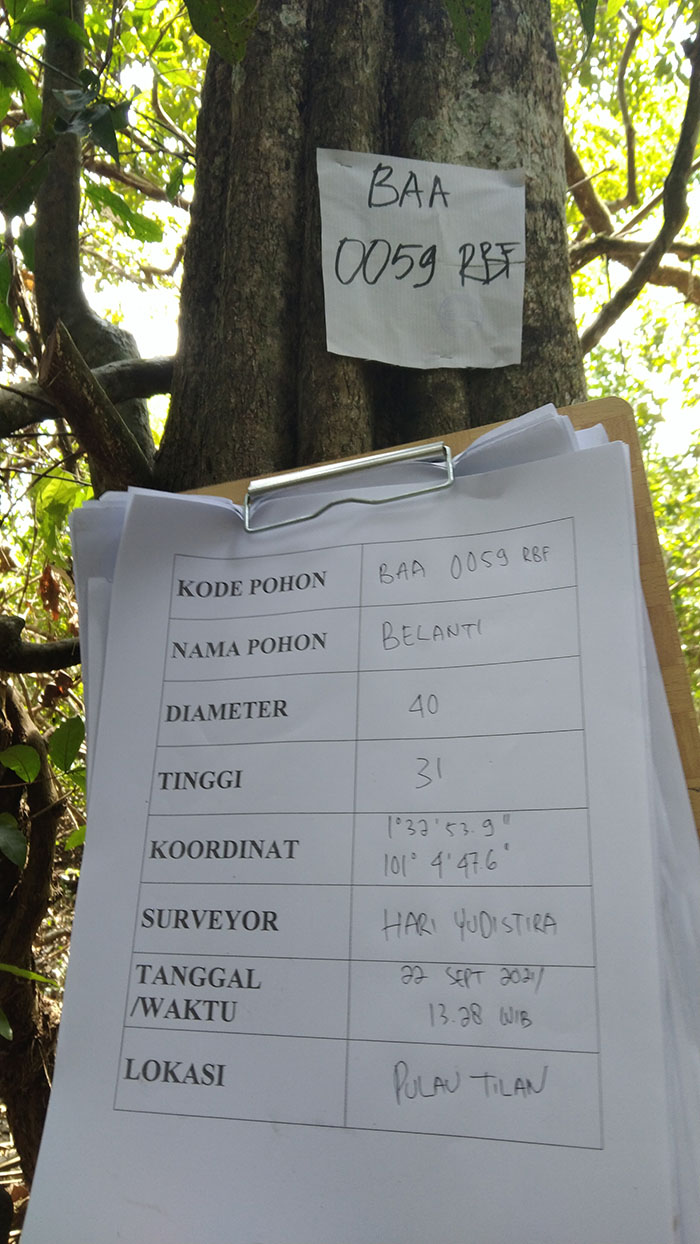 BAA
0059 RBF
KODE POHON BAA 0059 RBF
NAMA POHON BELANTI
DIAMETER 40
TINGGI 31
KOORDINAT 1°32'53.9"
101° 4'47.6"
SURVEYOR HARI YUDISTIRA
TANGGAL 22 SEPT 2021/
/WAKTU 13.28 WIB
LOKASI PULAU TILAN